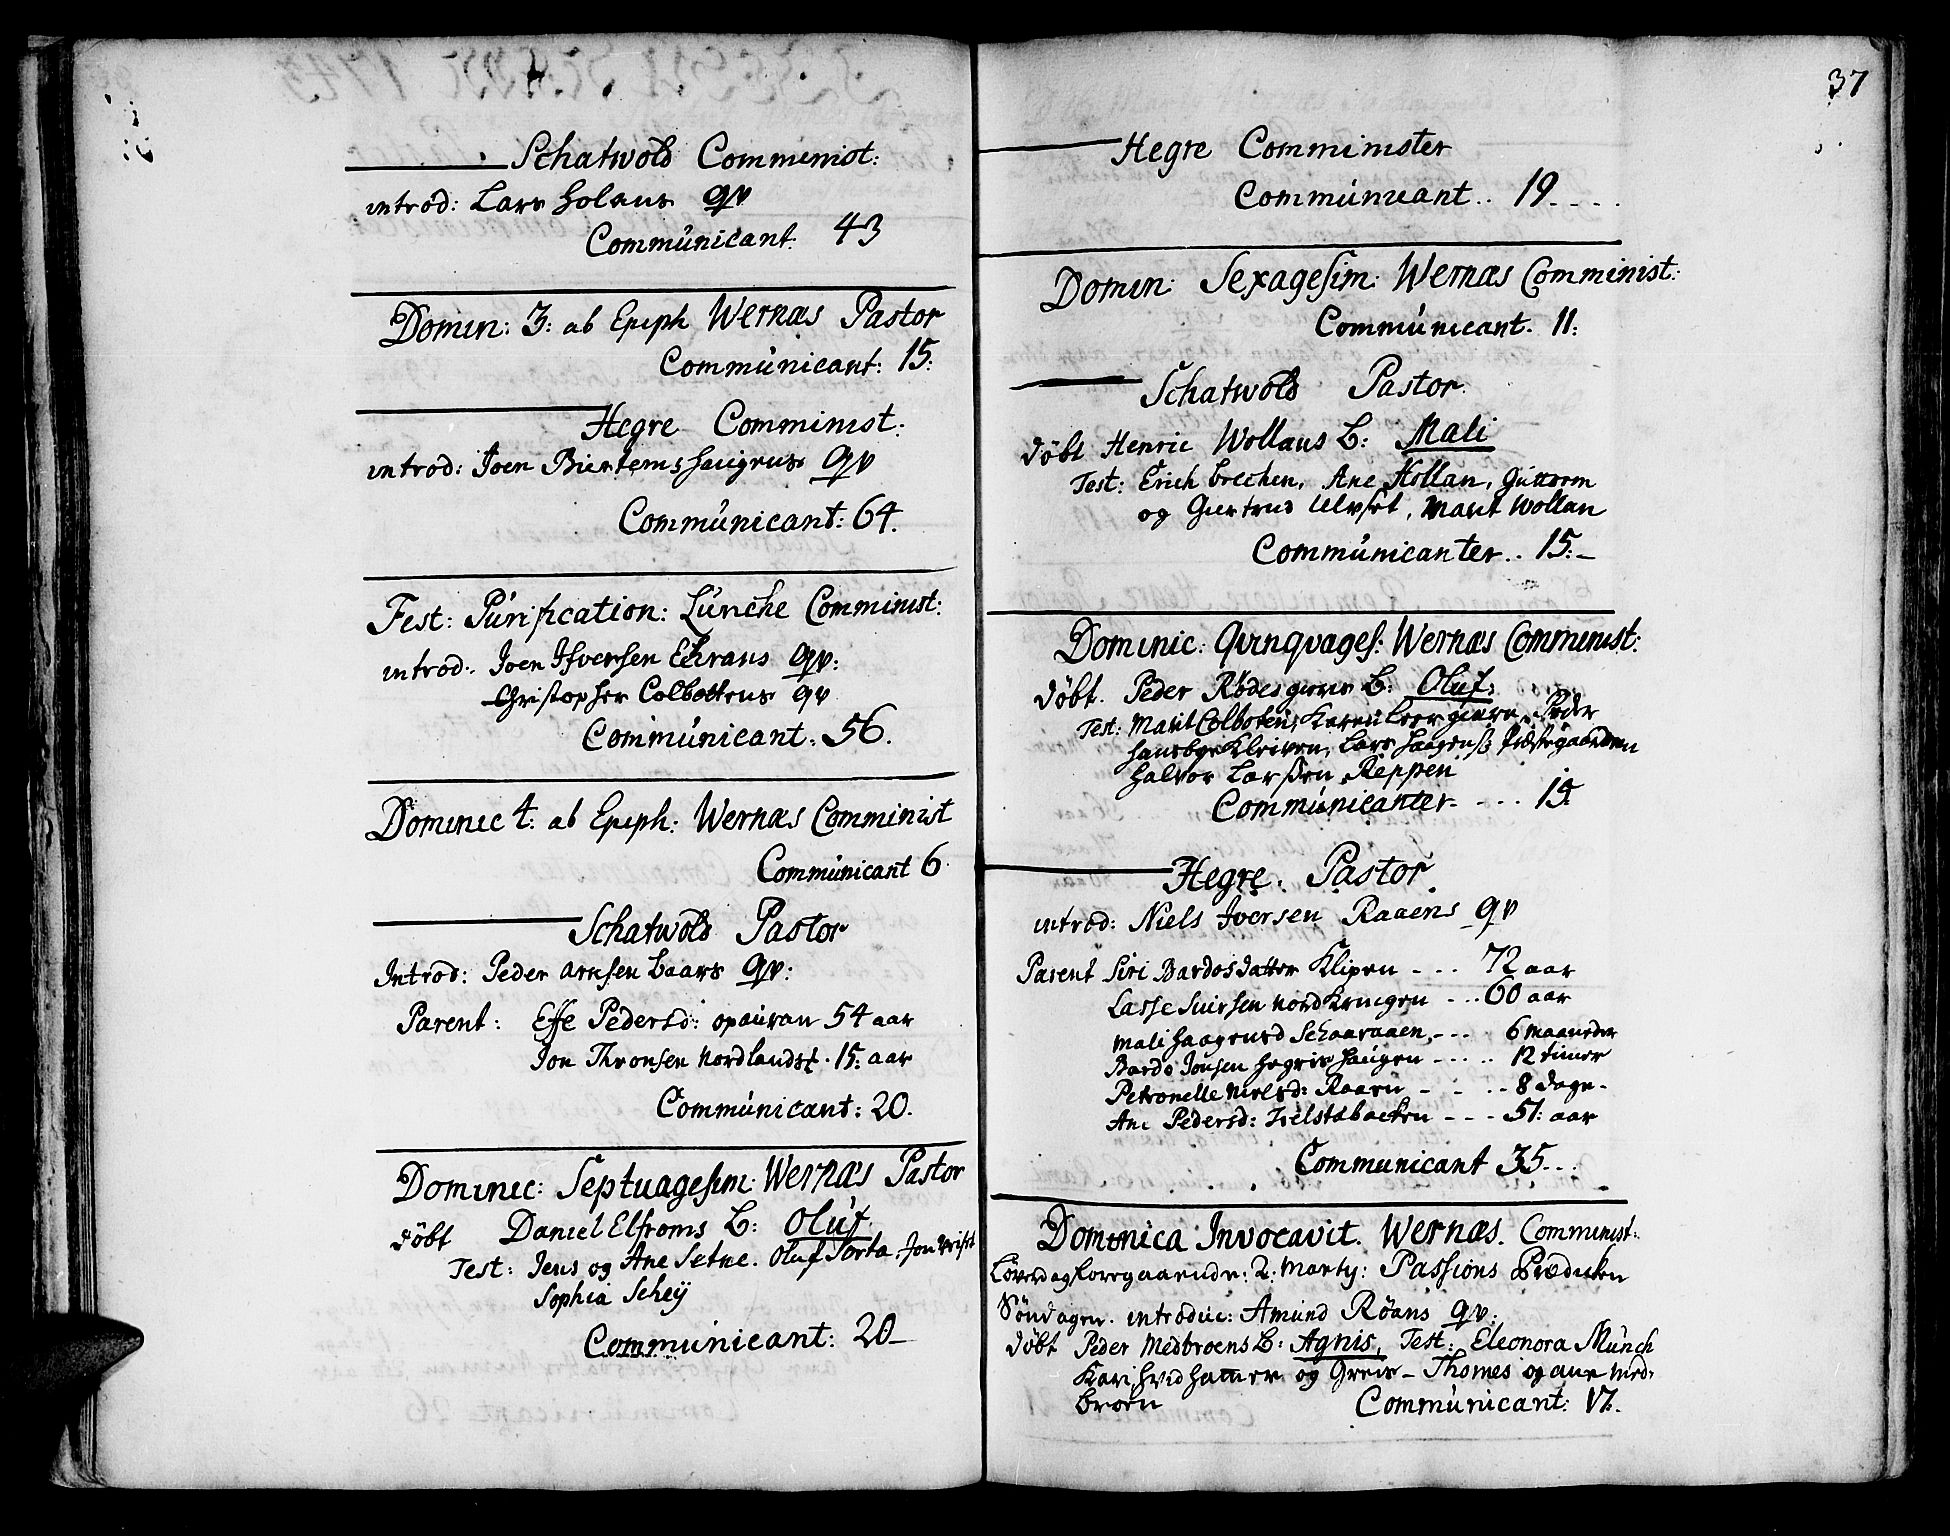 Schatwold Comminist:
introd: Lars Holans qv
Communicant: 43
Domin: 3: ab Epiph Wernæs Pastor
Communicant: 15:
Hegre Comminist:
introd: Joen Biertems haugens qv
Communicant: 64.
Fest: Purification: Lunche Comminist:
introd: Joen Ifversen Ehrans qv:
Christopher Colbottens qv
Communicant: 56.
Dominic 4: ab Epiph: Wernæs Comminist
Communicant 6
Schatwold Pastor
Introd: Peder Arnsen Baars qv:
Parent: Effe Pedersd: opauran 54 aar
Jon Thronsen Nordlandst. 15: aar
Communicant: 20.
Dominic: Septuagesim: Wernæs Pastor
døbt Daniel Elfroms B: Oluf
Test: Jens og Ane Setne. Oluf Torta. Jon
Sophia Scheÿ
Communicant: 20
37
Hegre Comminister
Communicant.. 19
Domin: Sexagesim: Wernæs Comminist:
Communicant. 11:
Schatwold Pastor
døbt Henric Wollans B: Mali
Test: Erich Brechen, Ane Hollan, Guttorm
og Giertrud Ulvset, Marit Wollan
Communicanter.. 15:
Dominic: Qvinqvages: Wernæs Comminist:
døbt. Peder Rødesgiers B: Oluf:
Test: Marit Colboten, Karen Leergieren Peder
Kleiven, Lars Haagens Præstegaarden
Halvor Larsen Reppen
Communicanter - - - 15:
Hegre. Pastor
introd: Niels Iversen Raaens qv
Parent Siri Bardosdatter Klipen - - - 72 aar
Lasse Siursen Nordkringen - - - 60 aar
Mali Haagensd Schaaraaen, - - - 6 maaneder
Bardo Jonsen Hegreshaugen - - - 12 timer
Petronelle Nielsd: Raaen - - - 8 dage
Ane Pedersd: Tielstabacken - - - 51: aar
Communicant 35
Dominica Invocavit. Wernæs. Comminist:
Løverdag foregaaende: 2: Marty: Passions Prædicken
Søndagen. introduc: Amund Røans qv:
døbt Peder Medbroens B: Agnis, Test: Eleonora Munch
Kari Hvidhamer og Greis - Thomes og ane Med-
broen Communicant: 17.